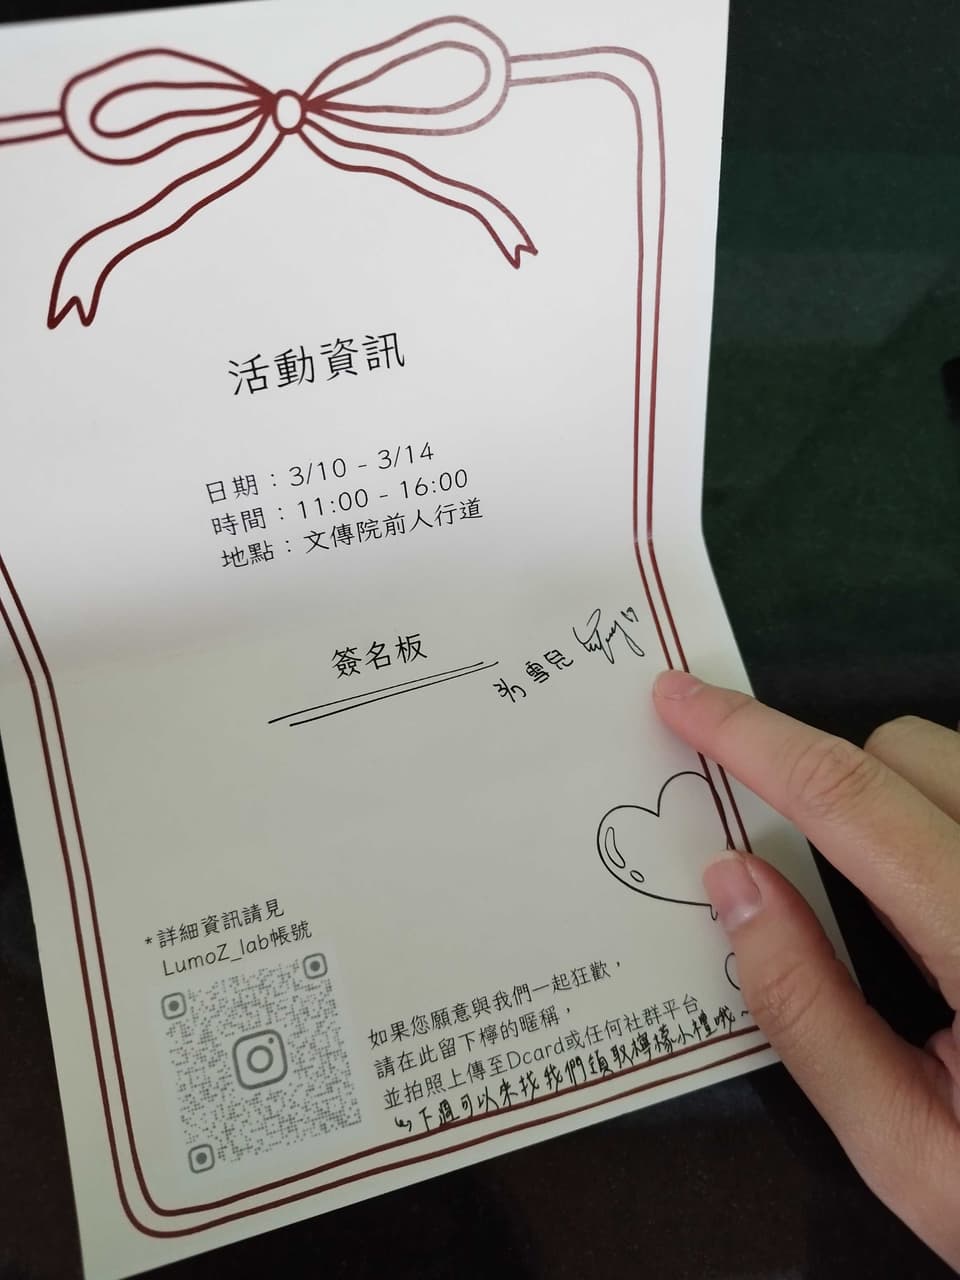 活動資訊
日期：3/10 - 3/14
時間：11:00 - 16:00
地點：文傳院前人行道
簽名板
雪兒
*詳細資訊請見
LumoZ_lab帳號
如果您願意與我們一起狂歡，
請在此留下檸的暱稱，
並拍照上傳至Dcard或任何社群平台
↳下週可以來找我們領取檸檬小禮哦~